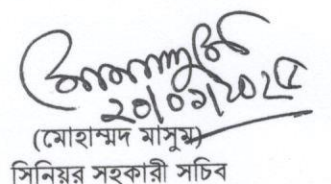 ২০/০৭/২০২৫
(মোহাম্মদ মাসুম)
সিনিয়র সহকারী সচিব